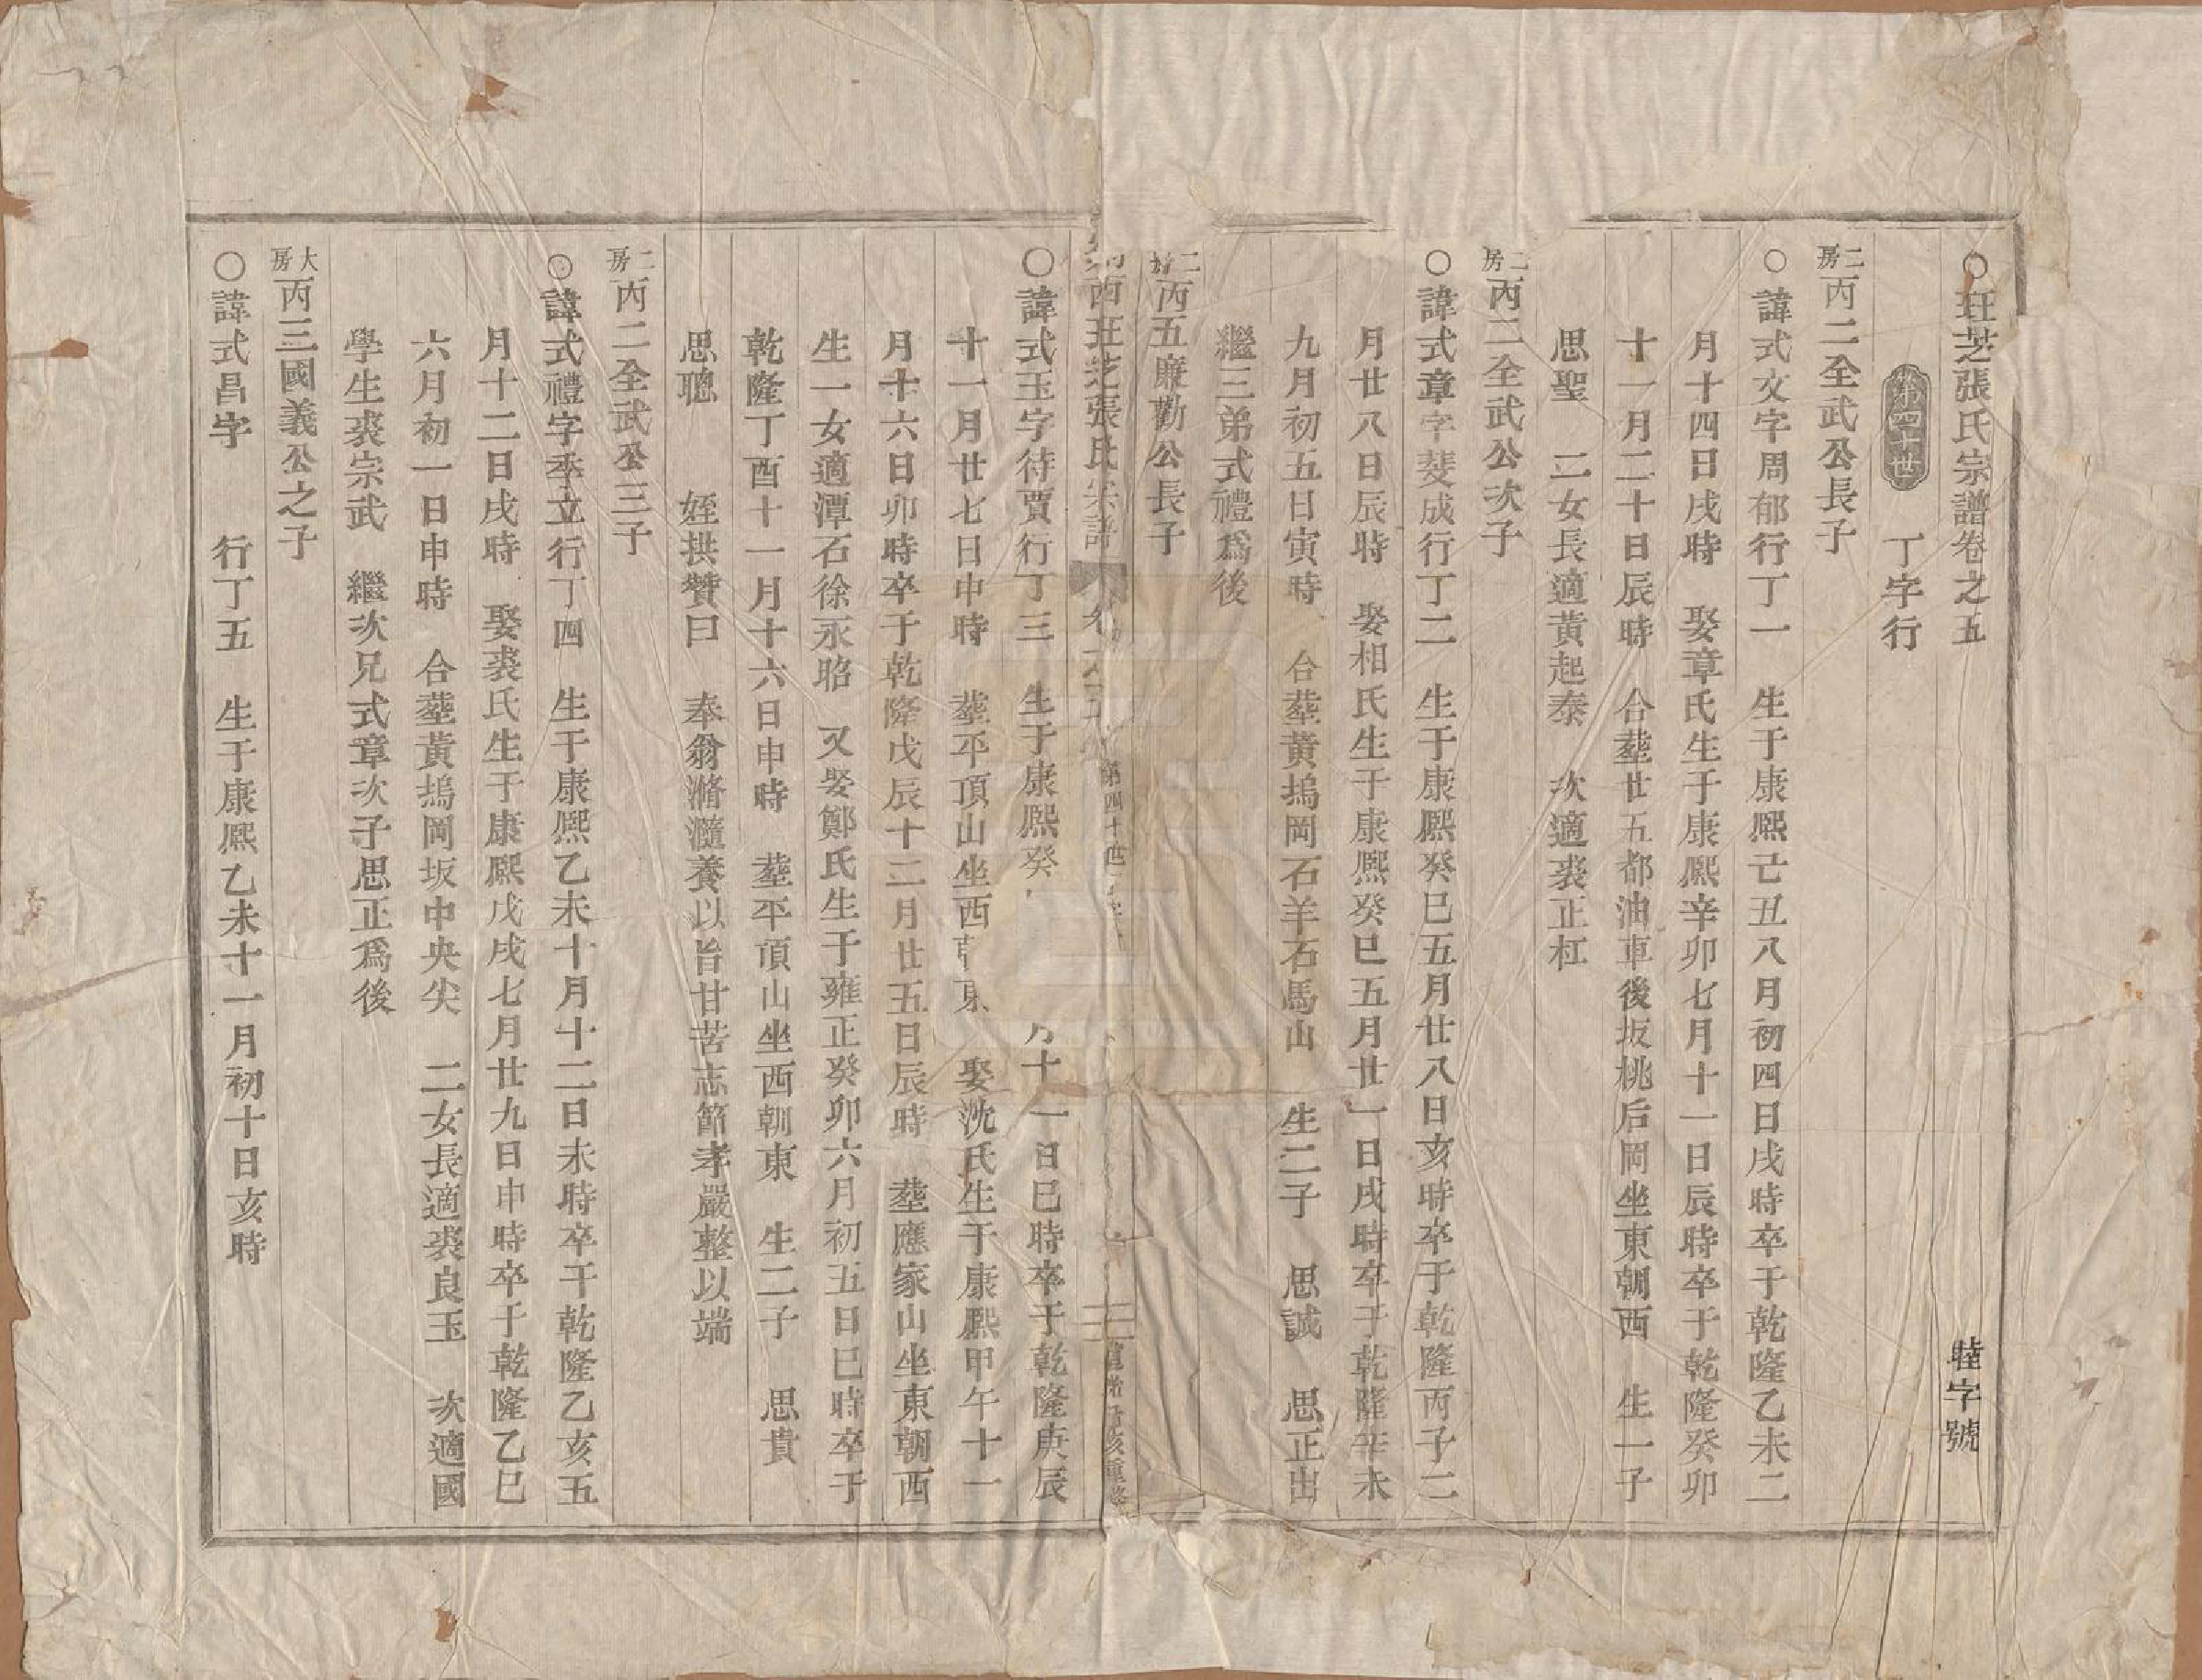 ○班芝張氏宗譜卷之五 睦字號
第四十世 丁字行
二房丙二全武公長子
○諱式文字周郁行丁一 生于康熙己丑八月初四日戌時卒于乾隆乙未二
月十四日戌時 娶章氏生于康熙辛卯七月十一日辰時卒于乾隆癸卯
十一月二十日辰時 合塟廿五都油車後坂桃后岡坐東朝西 生一子
思聖 二女長適黃起泰 次適裘正杠
二房丙二全武公次子
○諱式章字斐成行丁二 生于康熙癸巳五月廿八日亥時卒于乾隆丙子二
月廿八日辰時 娶相氏生于康熙癸巳五月廿一日戌時卒于乾隆辛未
九月初五日寅時 合塟黃塢岡石羊石馬山 生二子 思誠 思正出
繼三弟式禮爲後
二房丙五廉勸公長子
西班芝張氏宗譜 卷之五 第四十世 重修
○諱式玉字待賈行丁三 生于康熙癸 月十一日巳時卒于乾隆庚辰
十一月廿七日申時 塟平頂山坐西 東 娶沈氏生于康熙甲午十一
月十六日卯時卒于乾隆戊辰十二月廿五日辰時 塟應家山坐東朝西
生一女適潭石徐永昭 又娶鄭氏生于雍正癸卯六月初五日巳時卒于
乾隆丁酉十一月十六日申時 塟平頂山坐西朝東 生二子 思貴
思聰 姪拱贊曰 奉翁滫瀡養以旨甘苦志節孝嚴整以端
二房丙二全武公三子
○諱式禮字季立行丁四 生于康熙乙未十月十二日未時卒于乾隆乙亥五
月十二日戌時 娶裘氏生于康熙戊戌七月廿九日申時卒于乾隆乙巳
六月初一日申時 合塟黃塢岡坂中央尖 二女長適裘良玉 次適國
學生裘宗武 繼次兄式章次子思正爲後
大房丙三國義公之子
○諱式昌字 行丁五 生于康熙乙未十一月初十日亥時